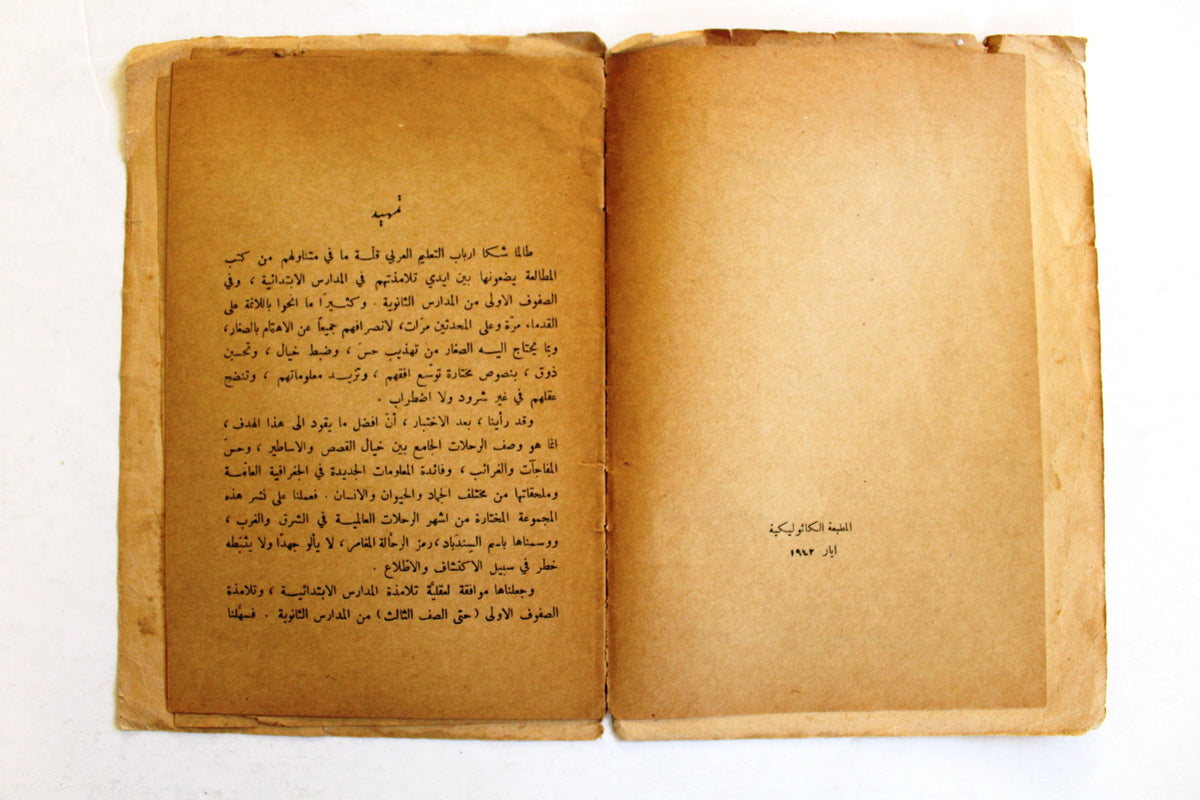 المطبعة الكاثوليكية
ايار ١٩٤٢
تمهيد
طالما شكا ارباب التعليم العربي قلّة ما في متناولهم من كتب
المطالعة يضعونها بين ايدي تلامذتهم في المدارس الابتدائية ، وفي
الصفوف الاولى من المدارس الثانوية . وكثيرًا ما انحوا باللائمة على
القدماء مرّة وعلى المحدثين مرّات، لانصرافهم جميعاً عن الاهتمام بالصغار،
وبما يحتاج اليه الصغار من تهذيب حسّ ، وضبط خيال ، وتحسين
ذوق ، بنصوص مختارة توسّع افقهم ، وتزيد معلوماتهم ، وتنضج
عقلهم في غير شرود ولا اضطراب .
وقد رأينا ، بعد الاختبار ، أنّ افضل ما يقود الى هذا الهدف ،
انما هو وصف الرحلات الجامع بين خيال القصص والاساطير ، وحسّ
المفاجآت والغرائب ، وفائدة المعلومات الجديدة في الجغرافية العامّة
وملحقاتها من مختلف الجماد والحيوان والانسان . فعملنا على نشر هذه
المجموعة المختارة من اشهر الرحلات العالمية في الشرق والغرب ،
ووسمناها باسم السِندَباد، رمز الرحّالة المغامر، لا يألو جهدًا ولا يثبّطه
خطر في سبيل الاكتشاف والاطّلاع .
وجعلناها موافقة لعقليَّة تلامذة المدارس الابتدائية ، وتلامذة
الصفوف الاولى (حتى الصف الثالث) من المدارس الثانوية . فسهَّلنا